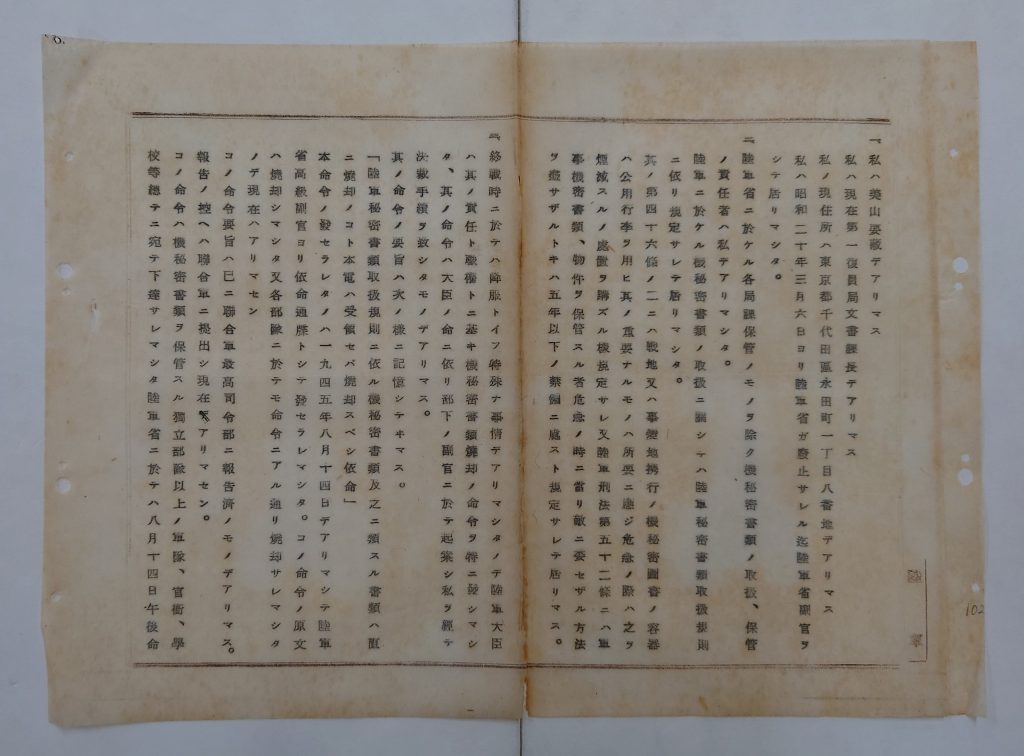 一、私ハ美山要藏デアリマス
私ハ現在第一復員局文書課長デアリマス
私ノ現住所ハ東京都千代田區永田町一丁目八番地デアリマス
私ハ昭和二十年三月六日ヨリ陸軍省ガ廢止サレル迄陸軍省副官ヲ
シテ居リマシタ。
二、陸軍省ニ於ケル各局課保管ノモノヲ除ク機秘密書類ノ取扱、保管
ノ責任者ハ私デアリマシタ。
陸軍ニ於ケル機秘密書類ノ取扱ニ關シテハ陸軍秘密書類取扱規則
ニ依リ規定サレテ居リマシタ。
其ノ第四十六條ノ二ニハ戰地又ハ事變地携行ノ機秘密圖書ノ容器
ハ公用行李ヲ用ヒ其ノ重要ナルモノハ所要ニ應ジ危急ノ際ハ之ヲ
煙滅スルノ處置ヲ講ズル樣規定サレ又陸軍刑法第五十二條ニハ軍
事機密書類、物件ヲ保管スル者危急ノ時ニ當リ敵ニ委セザル方法
ヲ盡サザルトキハ五年以下ノ禁錮ニ處スト規定サレテ居リマス。
三、終戰時ニ於テハ降服トイフ特殊ナ事情デアリマシタノデ陸軍大臣
ハ其ノ責任ト職務トニ基キ機秘密書類燒却ノ命令ヲ特ニ發シマシ
タ、其ノ命令ハ大臣ノ命ニ依リ部下ノ副官ニ於テ起案シ私ヲ經テ
決裁手續ヲ致シタモノデアリマス。
其ノ命令ノ要旨ハ次ノ樣ニ記憶シテヰマス。
「陸軍秘密書類取扱規則ニ依ル機秘密書類及之ニ類スル書類ハ直
ニ燒却ノコト本電ハ受領セバ燒却スベシ依命」
本命令ノ發セラレタノハ一九四五年八月十四日デアリマシテ陸軍
省高級副官ヨリ依命通牒トシテ發セラレマシタ。コノ命令ノ原文
ハ燒却シマシタ又各部隊ニ於テモ命令ニアル通リ燒却サレマシタ
ノデ現在ハアリマセン
コノ命令要旨ハ已ニ聯合軍最高司令部ニ報告濟ノモノデアリマス。
報告ノ控ヘハ聯合軍ニ提出シ現在アリマセン。
コノ命令ハ機秘密書類ヲ保管スル獨立部隊以上ノ軍隊、官衙、學
校等總テニ宛テ下達サレマシタ陸軍省ニ於テハ八月十四日午後命
陸
軍
102